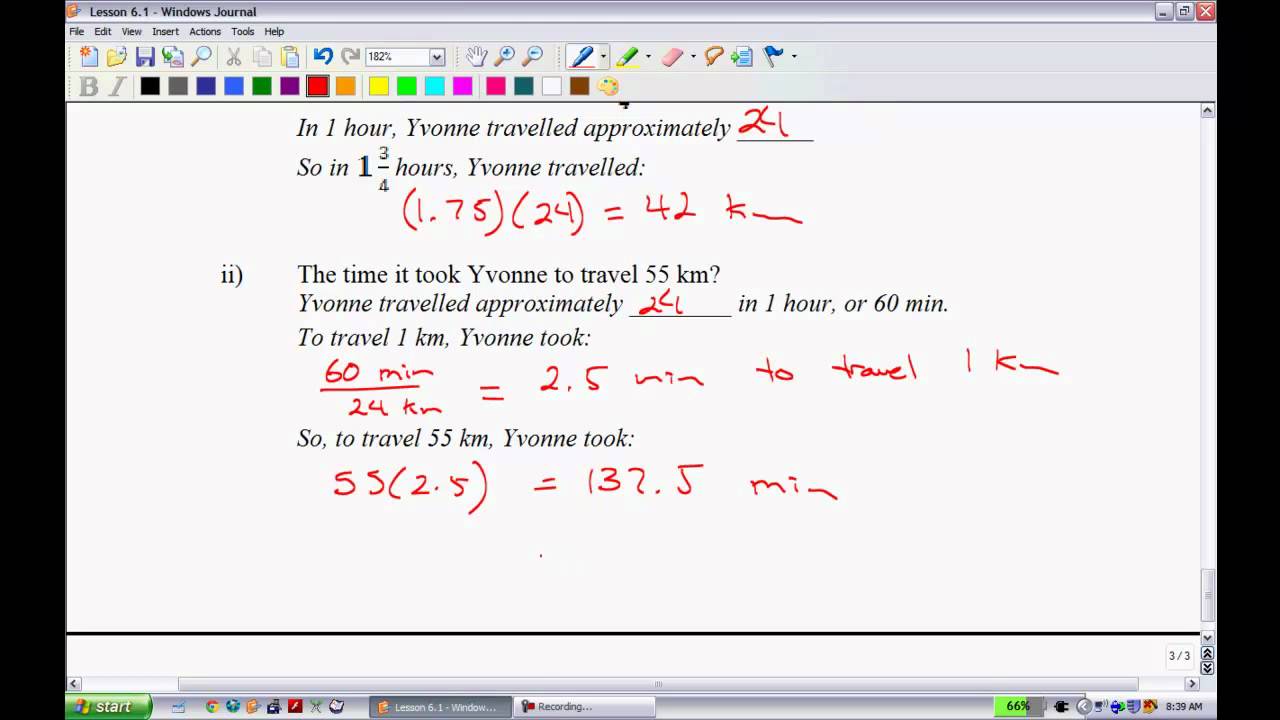 Lesson 6.1 - Windows Journal
File Edit View Insert Actions Tools Help
182%
B I
In 1 hour, Yvonne travelled approximately 24
So in 1 3/4 hours, Yvonne travelled:
(1.75)(24) = 42 km
ii) The time it took Yvonne to travel 55 km?
Yvonne travelled approximately 24 in 1 hour, or 60 min.
To travel 1 km, Yvonne took:
60 min / 24 km = 2.5 min to travel 1 km
So, to travel 55 km, Yvonne took:
55(2.5) = 137.5 min
3 / 3
start Lesson 6.1 - Window... Recording... 66% 8:39 AM